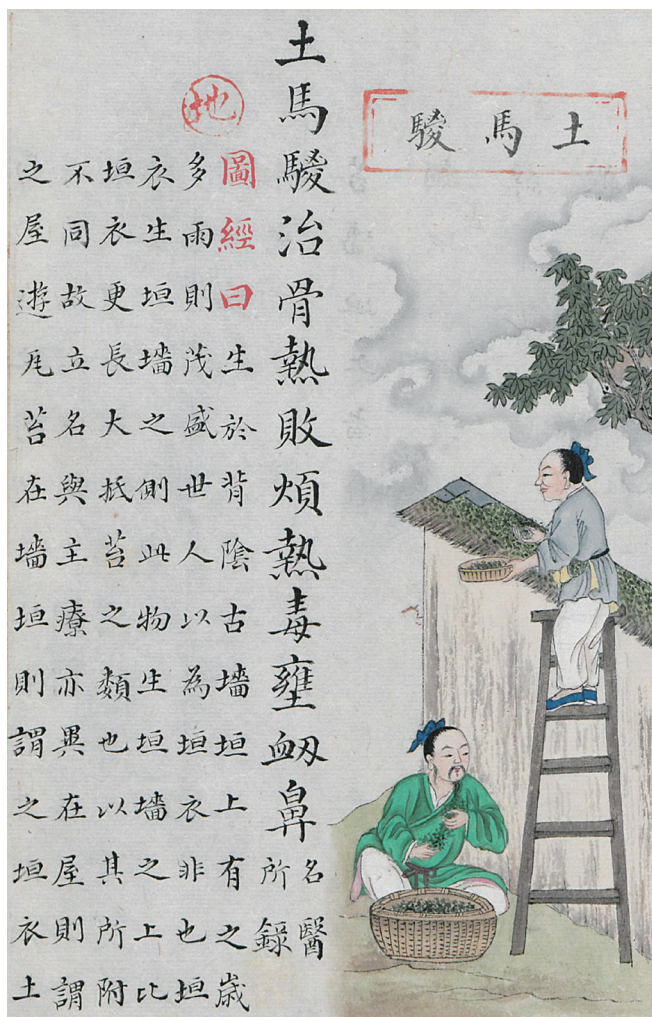 土馬騣
土馬騣治骨熱敗煩熱毒壅衂鼻名醫所錄
地
圖經曰生於背陰古墻垣上有之歲
多雨則茂盛世人以為垣衣非也垣
衣生垣墻之側此物生垣墻之上比
垣衣更長大抵苔之類也以其所附
不同故立名與主療亦異在屋則謂
之屋遊瓦苔在墻垣則謂之垣衣土